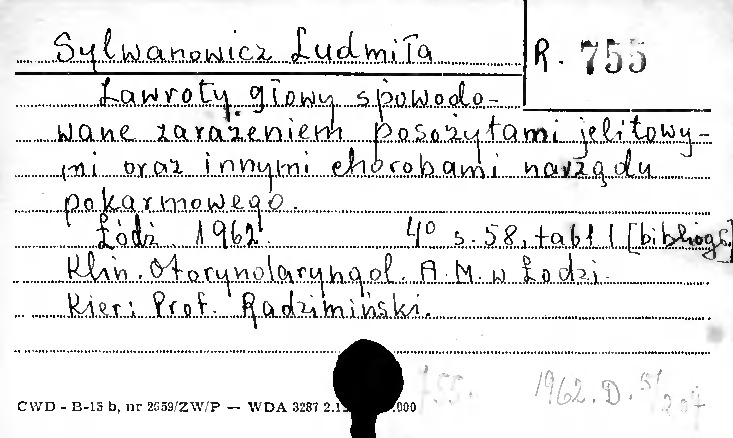 Sylwanowicz Ludmiła
R. 755
Zawroty głowy spowodo-
wane zarażeniem pasożytami jelitowy-
mi oraz innymi chorobami narządu
pokarmowego.
Łódź 1962. 4° s. 58, tabl 1 [bibliogr.]
Klin. Otorynolaryngol. A. M. w Łodzi.
Kier: Prof. Radzimiński.
755.
1962. D. 51/204
CWD - B-15 b, nr 2659/ZW/P — WDA 3287 2.1 .000